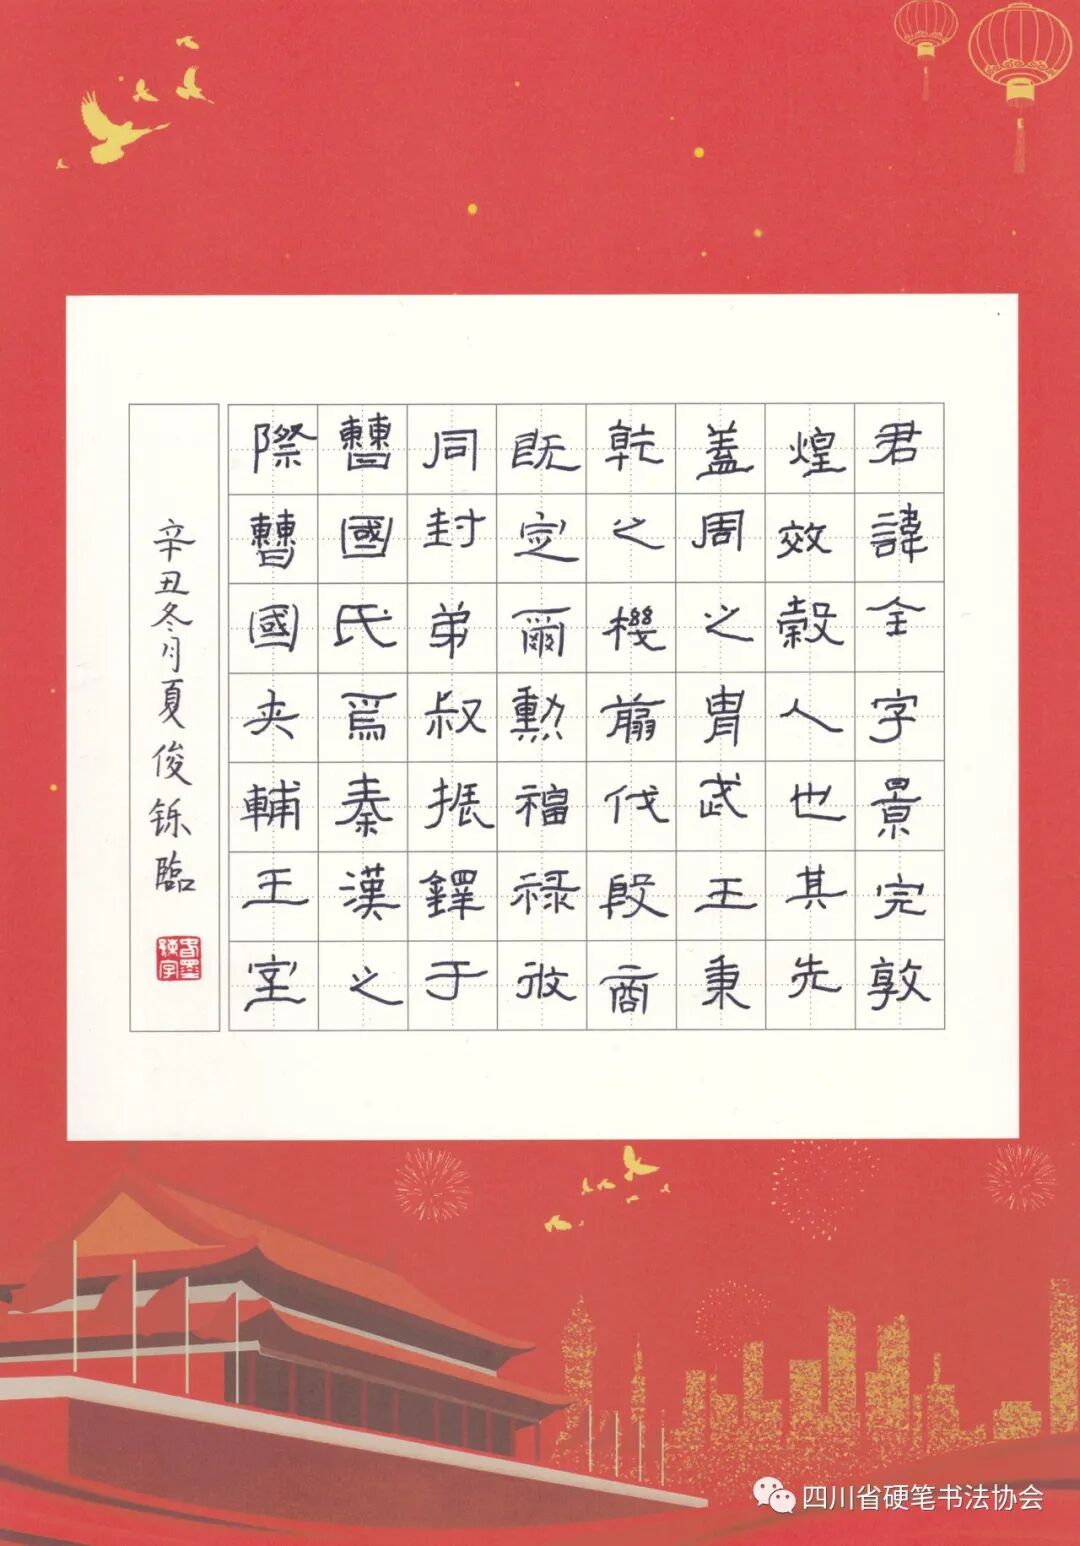 君諱全字景完敦
煌效穀人也其先
蓋周之胄武王秉
乾之機翦伐殷商
既定爾勳福祿攸
同封弟叔振鐸于
曹國氏焉秦漢之
際曹國夾輔王室
辛丑冬月夏俊铄臨
四川省硬笔书法协会